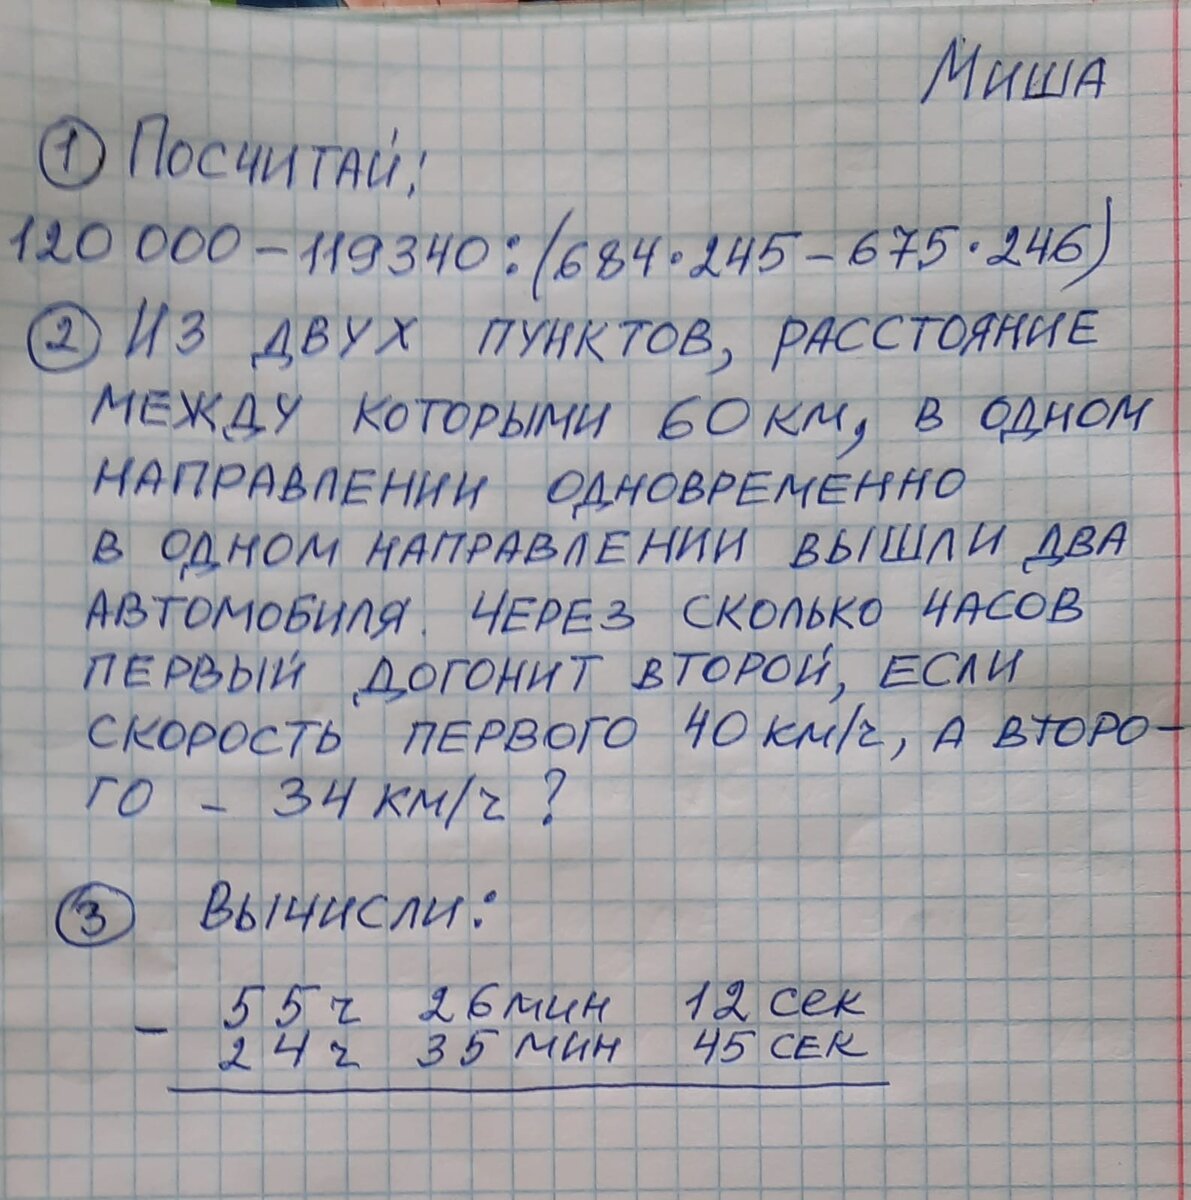 Миша
1 Посчитай:
120 000 - 119340 : (684 · 245 - 675 · 246)
2 Из двух пунктов, расстояние
между которыми 60 км, в одном
направлении одновременно
в одном направлении вышли два
автомобиля. Через сколько часов
первый догонит второй, если
скорость первого 40 км/ч, а второ-
го - 34 км/ч?
3 Вычисли:
- 55 ч 26 мин 12 сек
24 ч 35 мин 45 сек